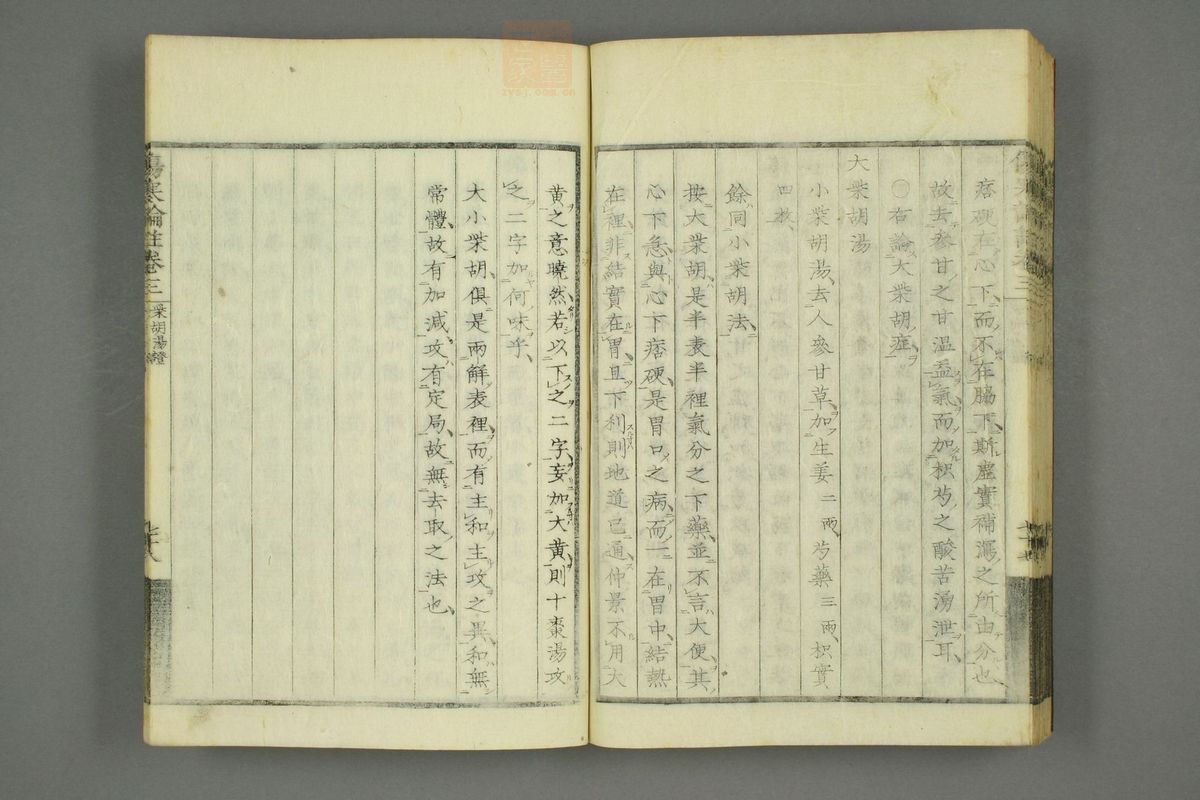 痞硬在心下而不在脇下斯虛實補瀉之所由分也
故去參甘之甘溫益氣而加枳芍之酸苦湧泄耳
〇右論大柴胡症
大柴胡湯
小柴胡湯去人參甘草加生姜二兩芍藥三兩枳實
四枚
餘同小柴胡法
按大柴胡是半表半裡氣分之下藥並不言大便其
心下急與心下痞硬是胃口之病而一在胃中結熱
在裡非結實在胃且下利則地道已通仲景不用大
黄之意曉然若以下之二字妄加大黄則十棗湯攻
之二字如何味乎
大小柴胡俱是兩解表裡而有主和主攻之異和無
常體故有加減攻有定局故無去取之法也
傷寒論註卷三
柴胡湯證
醫家
zysj.com.cn